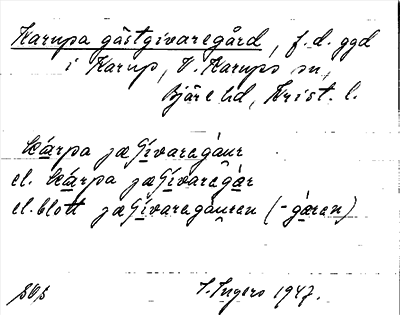 Karupa gästgivaregård, f.d. ggd
i Karup, V. Karups sn,
Bjäre hd, Krist. l.
kárpa jæGívaregåur
el. kárpa jæGívaregår
el. blott jæGívaregåuren (-gåren)
I. Ingers 1947.